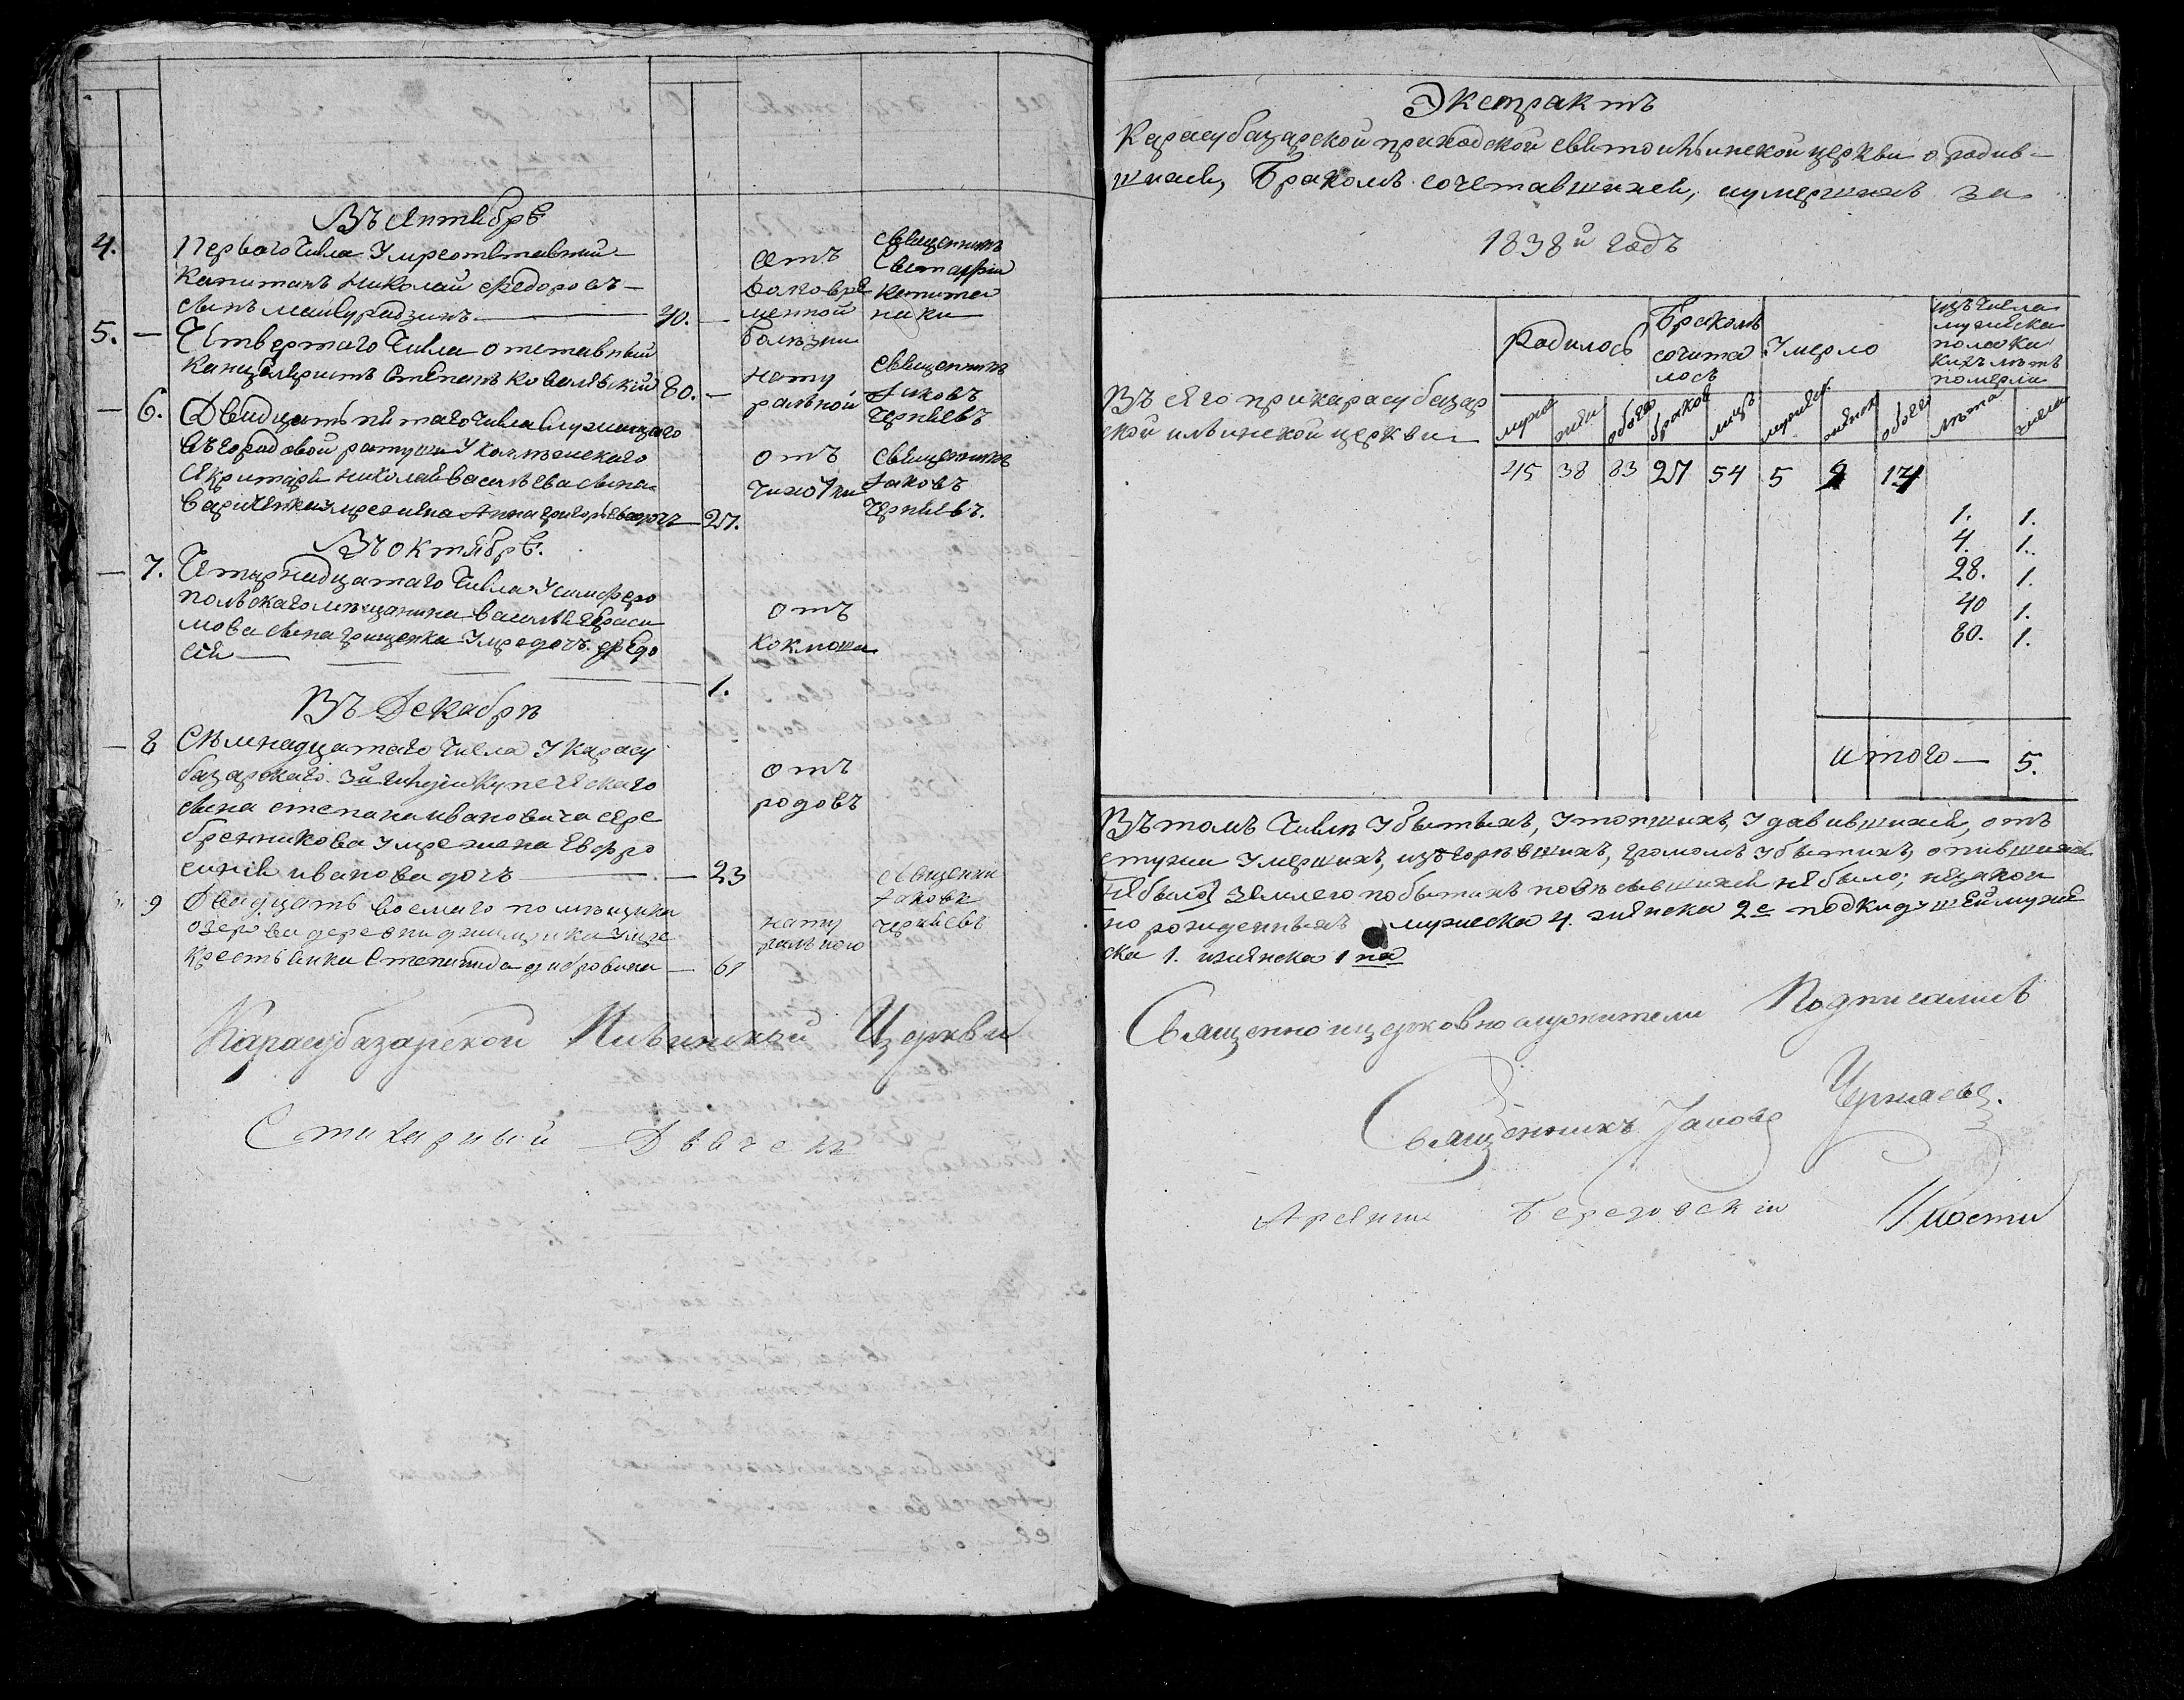 Въ Сентябрѣ
4. Первого Числа Умре отставный
Капитанъ Николай Федоровъ
сынъ 40. отъ
долговре
менной
болѣзни
священникъ
5. — Четвертого Числа отставный
Канцеляристъ Степанъ Ковалевскій 80. — нату
ральной
священникъ
Іаковъ
Черняевъ
— 6. Двадцать пятаго Числа Служащаго
въ городовой ратуши У
Секритаря Николая Васильева сына
умре жена Анна Григорьева дочь — 27. отъ
чахотки
священникъ
Іаковъ
Черняевъ.
Въ октябрѣ.
— 7. Четырнадцатаго Числа У симферо
польскаго мѣщанина Василія Гераси
мова сына Грищенка Умре дочь Федо
сія — 1. отъ
коклюша
Въ Декабрѣ
— 8 Семнадцатаго Числа У Карасу
базарскаго 3й Гильдіи Купеческаго
сына Степана Ивановича Сере
бренникова Умре жена Евфро
синія Иванова дочь — 23 отъ
родовъ
9 Двадцать восмаго помѣщика
деревни умре
Крестьянка — 61 нату
ральною
священни
Іаковъ
Черняевъ
Карасубазарской Ильинской Церкви
Стихарный Дьячекъ
Экстрактъ
Карасубазарской приходской свято ильинской церкви о родив-
шихся, Бракомъ сочетавшихся, и умершихъ за
1838й годъ
Родилось Бракомъ
сочита
лось Умерло изъ Числа
мужеска
пола ка
кихъ лѣтъ
померли
Въ Его при карасубазар
ской ильинской церкви
муж жен обоего браковъ лицъ мужеск женск обоего лѣта число
45 38 83 27 54 5
1. 1.
4. 1.
28. 1.
40 1.
80. 1.
итого — 5.
Въ томъ Числѣ Убытыхъ, Утопшихъ, Удавившихся, отъ
стужи Умершихъ, изгорѣвшихъ, громомъ Убытихъ, опившихся
Небыло, Землею побытыхъ повѣсившихся не было; незакон
но рожденныхъ мужеска 4. женска 2е подкидушей муже
ска 1. и женска 1 на
Священно и церковно служители Подписались
Священникъ Іаковъ Черняевъ.
Арсеній Березовскій